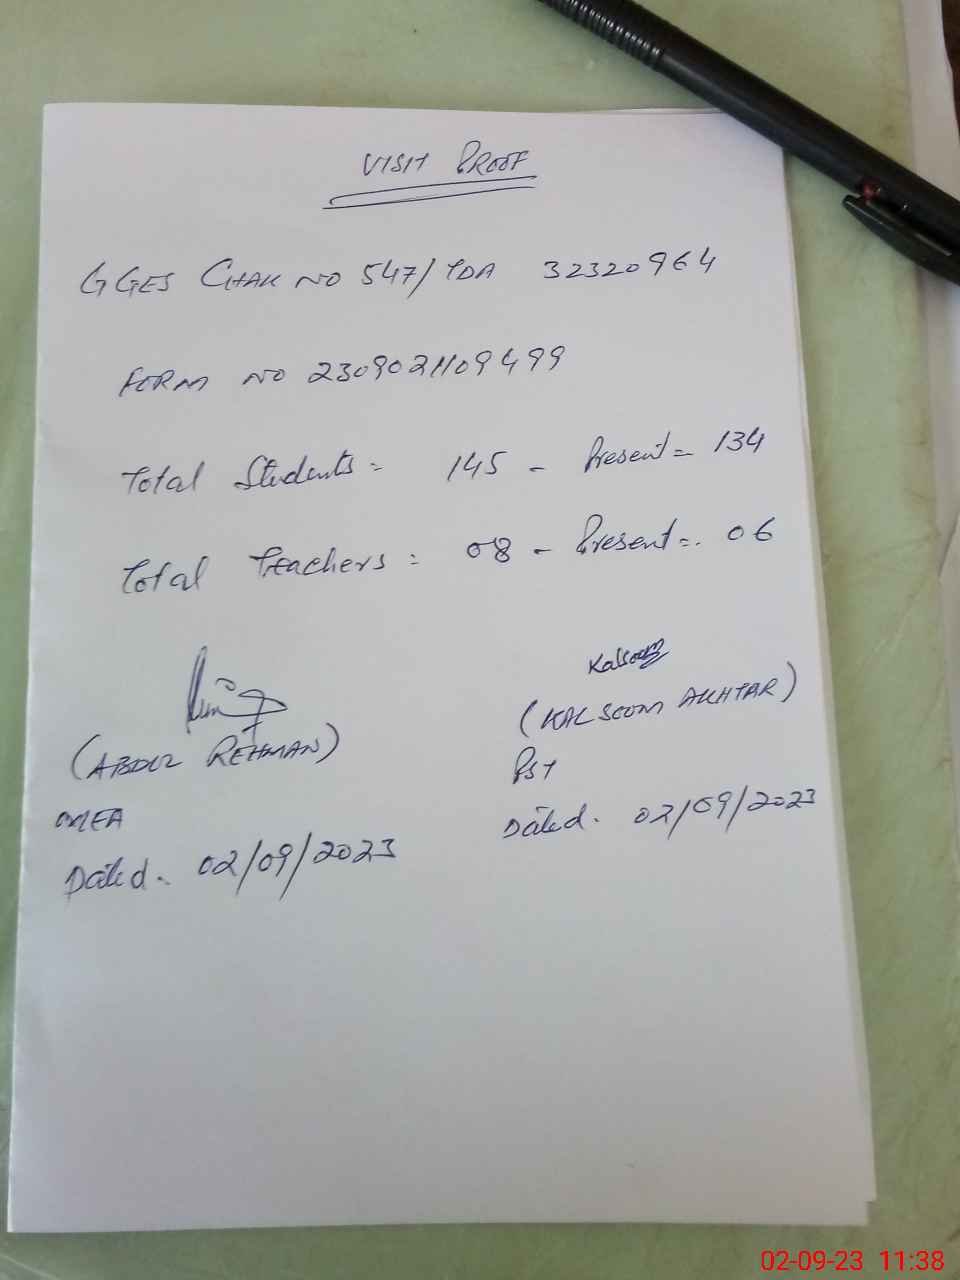 VISIT PROOF
GGES CHAK NO 547/TDA 32320964
FORM NO 230902109499
Total Students = 145 - Present = 134
Total Teachers = 08 - Present = 06
Kalsoom
(ABDUL REHMAN) (KALSOOM AKHTAR)
MEA PST
Dated. 02/09/2023 Dated. 02/09/2023
02-09-23 11:38